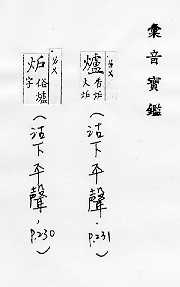 彙音寶鑑
爐 香炉 火炉
(沽下平聲, P.231)
炉 俗爐字
(沽下平聲, P.230)